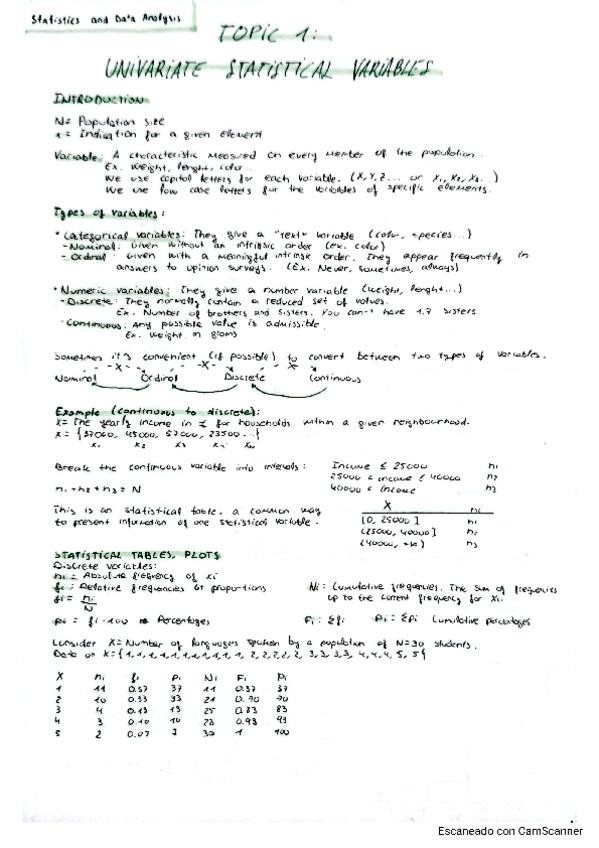 Statistics and Data Analysis
TOPIC 1:
UNIVARIATE STATISTICAL VARIABLES
INTRODUCTION
N= Population size
= Indication for a given element
Variable: A characteristic measured on every member of the population.
Ex. Weight, lenght, color..
We use capital letters for each variable. (X, Y, Z... or X1, X2, X3...)
We use low case letters for the variables of specific elements.
Types of variables:
* Categorical variables: They give a "text" variable (color, species...)
- Nominal: Given without an intrinsic order (ex. color)
- Ordinal: Given with a meaningful intrinsic order. They appear frequently in
answers to opinion surveys. (Ex. Never, sometimes, always)
* Numeric variables: They give a number variable (weight, lenght...)
- Discrete: They normally contain a reduced set of values.
Ex. Number of brothers and sisters. You can't have 1.7 sisters
- Continuous: Any possible value is admissible.
Ex. Weight in grams
Sometimes it's convenient (if possible) to convert between two types of variables.
Nominal Ordinal Discrete Continuous
Example (continuous to discrete):
X= The yearly income in € for households within a given neighbourhood.
X = {37000, 45000, 57000, 23500...}
X1 X2 X3 X4 XN
Break the continuous variable into intervals: Income ≤ 25000 n1
25000 < income ≤ 40000 n2
n1+n2+n3 = N 40000 < income n3
This is an statistical table, a common way X ni
to present information of one statistical variable. [0, 25000] n1
(25000, 40000] n2
(40000, +∞) n3
STATISTICAL TABLES, PLOTS
Discrete variables:
ni = Absolute frequency of xi
fi = Relative frequencies or proportions Ni: Cumulative frequencies. The sum of frequencies
fi = ni/N up to the current frequency for Xi.
pi = fi·100 ⇒ Percentages Fi: Σfi Pi: Σpi Cumulative percentages
Consider X= Number of languages spoken by a population of N=30 students.
Data on X={1,1,1,1,1,1,1,1,1,1,1, 2,2,2,2, 3,3,3,3, 4,4,4, 5, 5}
X ni fi pi Ni Fi Pi
1 11 0.37 37 11 0.37 37
2 10 0.33 33 21 0.70 70
3 4 0.13 13 25 0.83 83
4 3 0.10 10 28 0.93 93
5 2 0.07 7 30 1 100
Escaneado con CamScanner